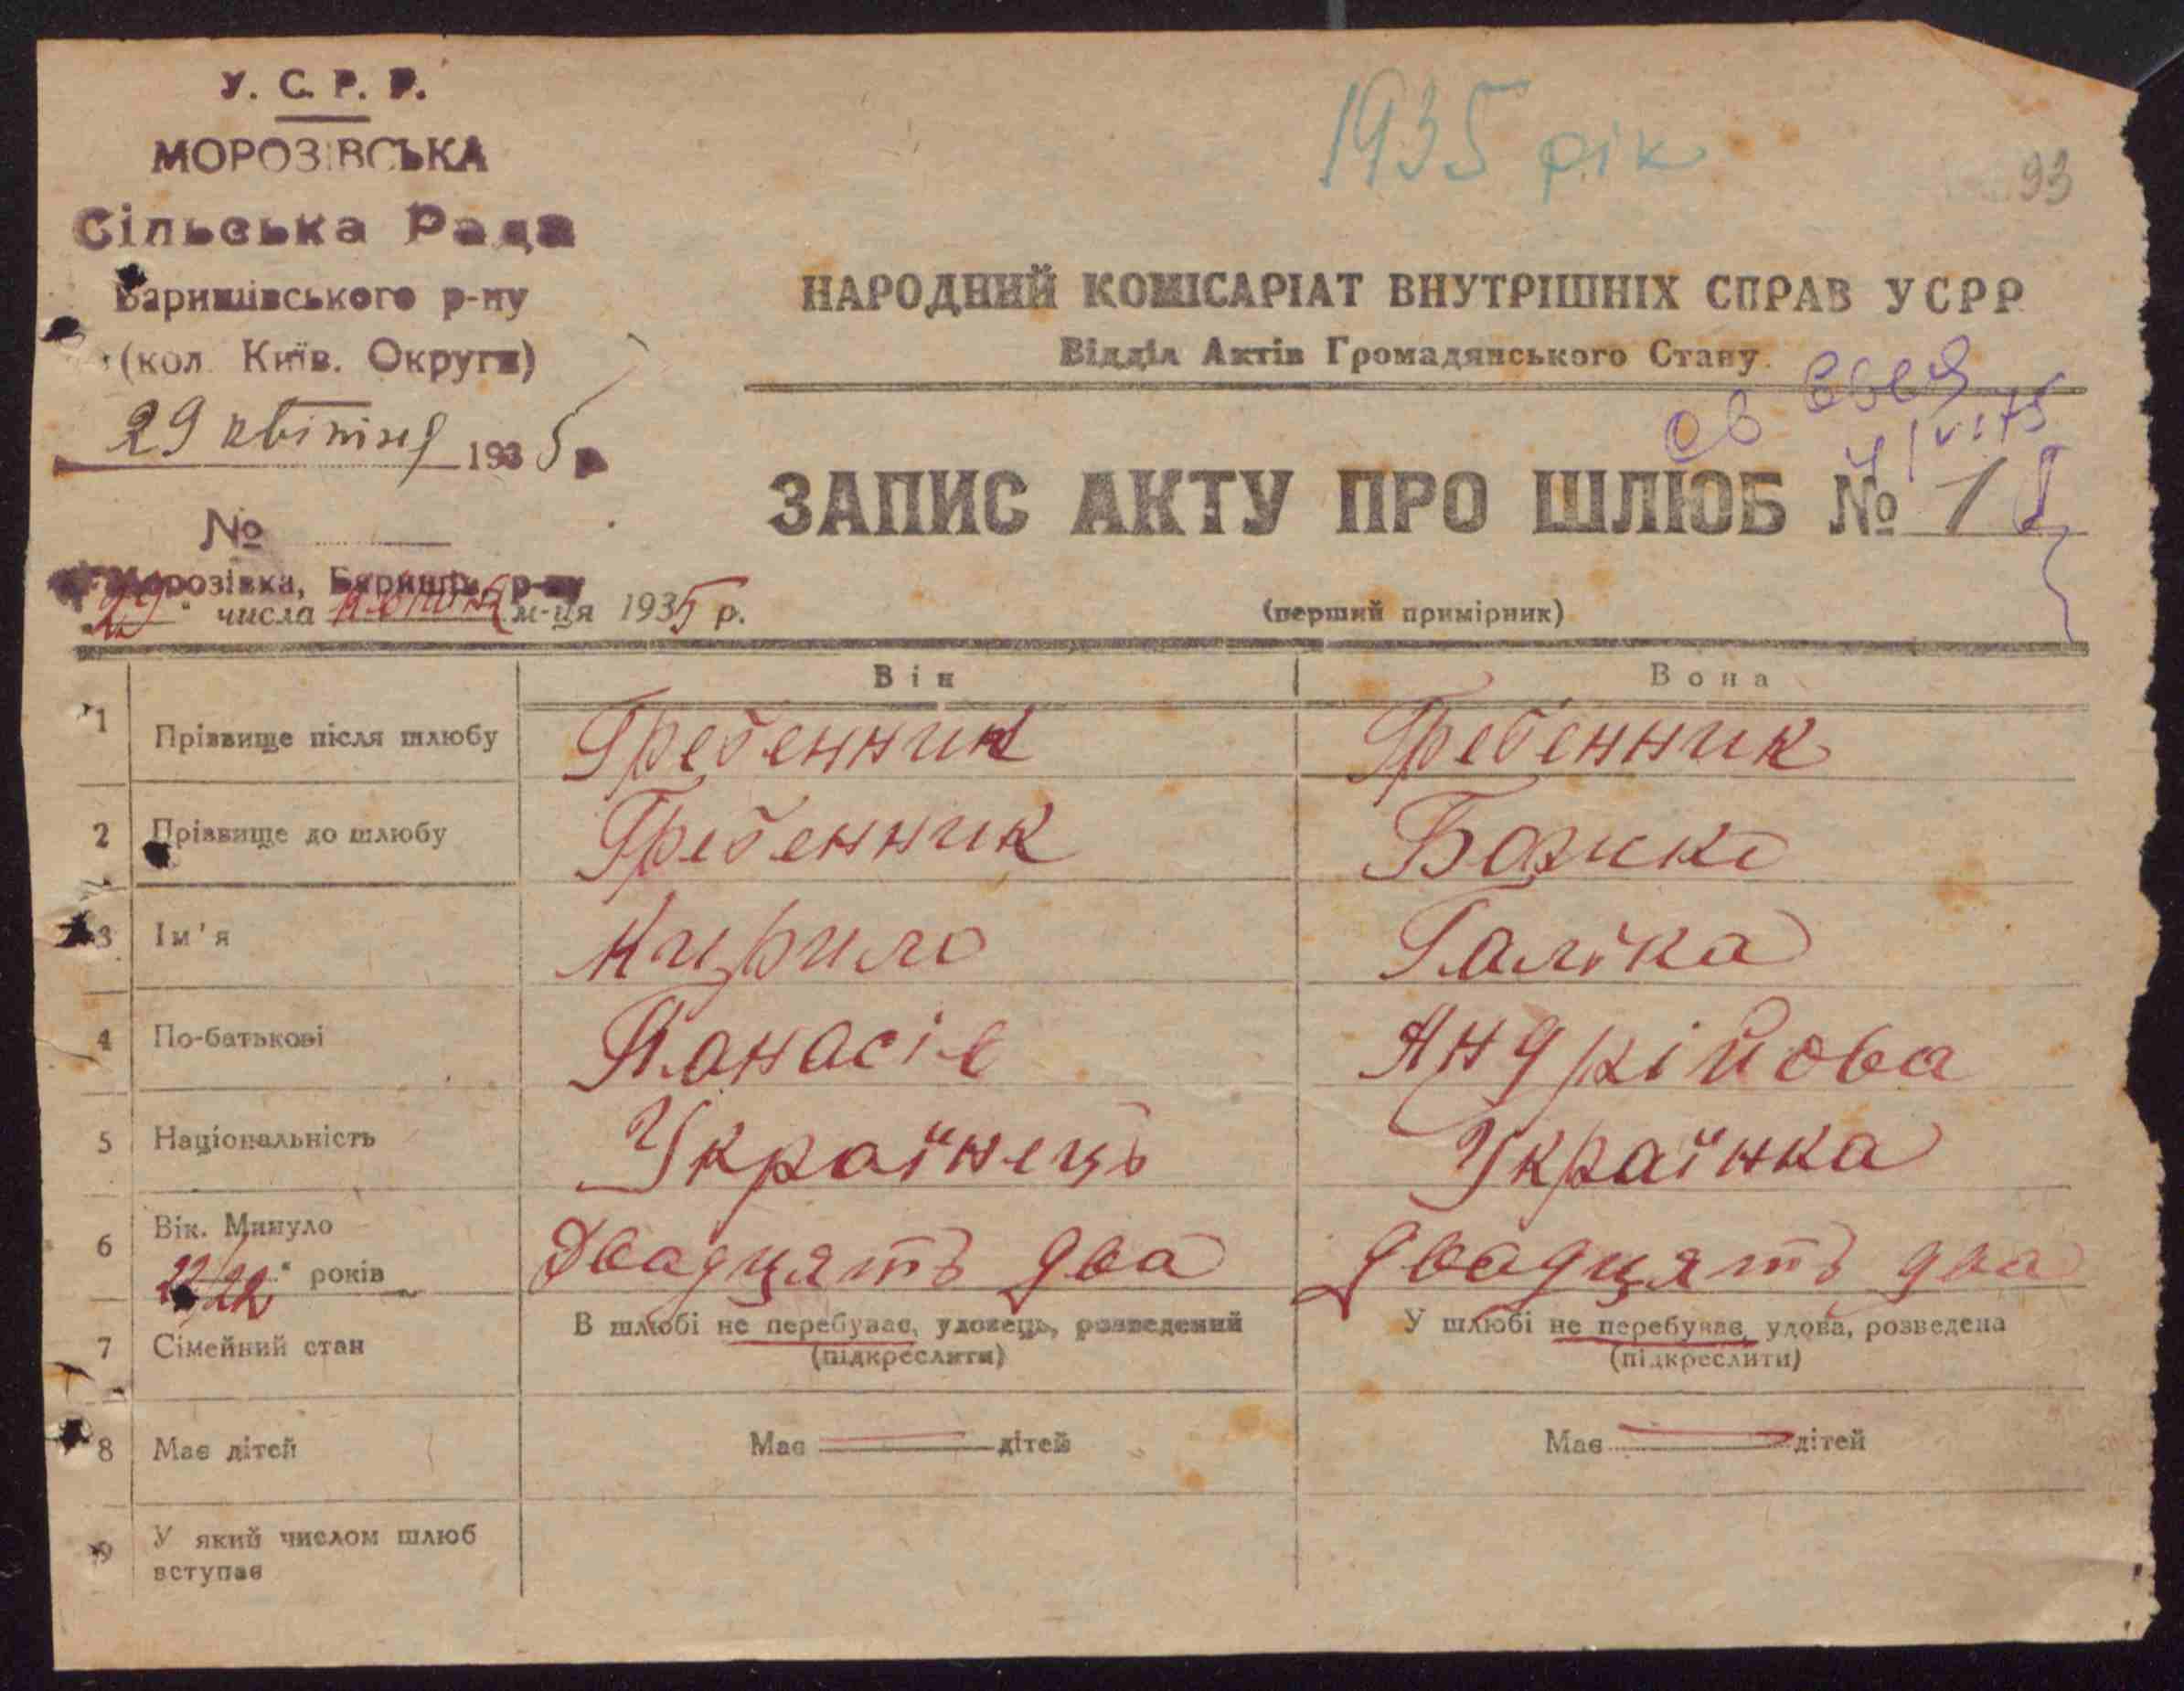 У. С. Р. Р.
МОРОЗІВСЬКА
Сільська Рада
Баришівського р-ну
(кол. Київ. Округи)
29 квітня 1935 р.
№
1935 рік
93
НАРОДНИЙ КОМІСАРІАТ ВНУТРІШНІХ СПРАВ УСРР
Відділ Актів Громадянського Стану
ЗАПИС АКТУ ПРО ШЛЮБ № 1
Морозівка, Баришів. р-ну
29 " числа квітня м-ця 1935 р.
(перший примірник)
Він Вона
1 Прізвище після шлюбу Гребенник Гребенник
2 Прізвище до шлюбу Гребенник Божко
3 Ім'я Кирило Галька
4 По-батькові Панасів Андрійова
5 Національність Українець Українка
6 Вік. Минуло 22/22 " років Двадцять два Двадцять два
7 Сімейний стан В шлюбі не перебуває, удовець, розведений (підкреслити) У шлюбі не перебуває, удова, розведена (підкреслити)
8 Має дітей Має дітей Має дітей
9 У який числом шлюб вступає